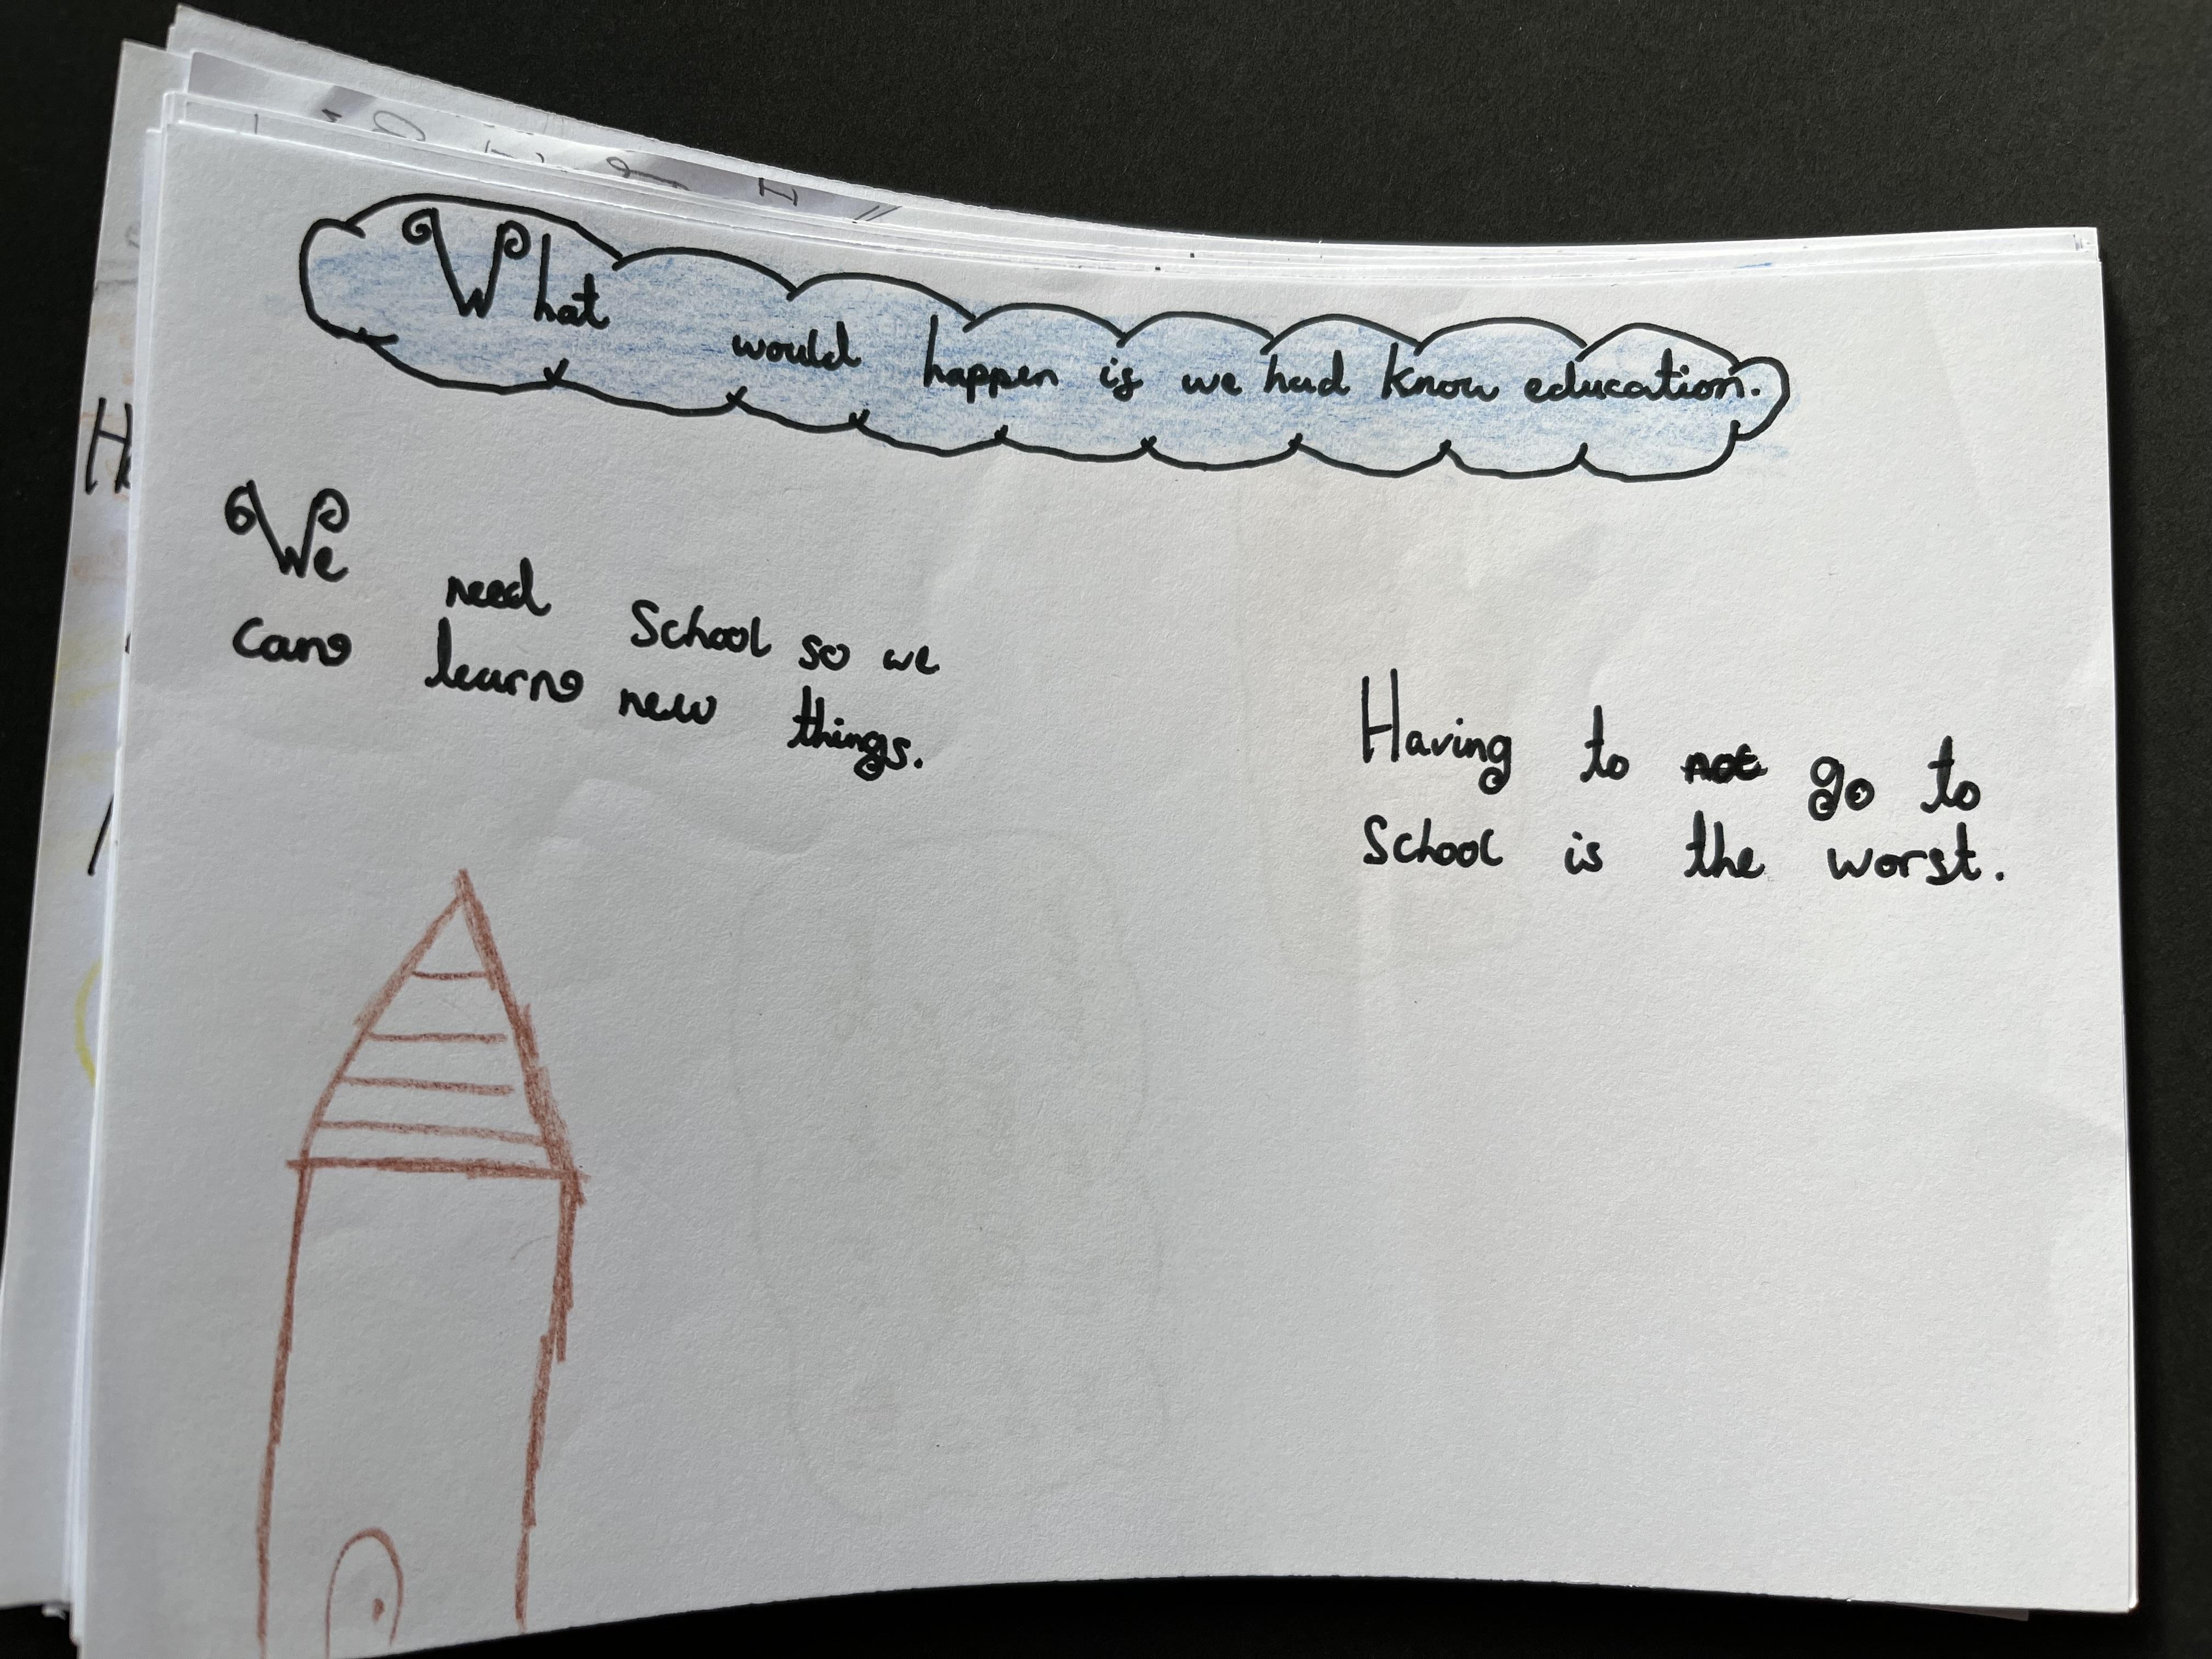 What would happen is we had know education.
We need School so we
can learn new things.
Having to not go to
School is the worst.